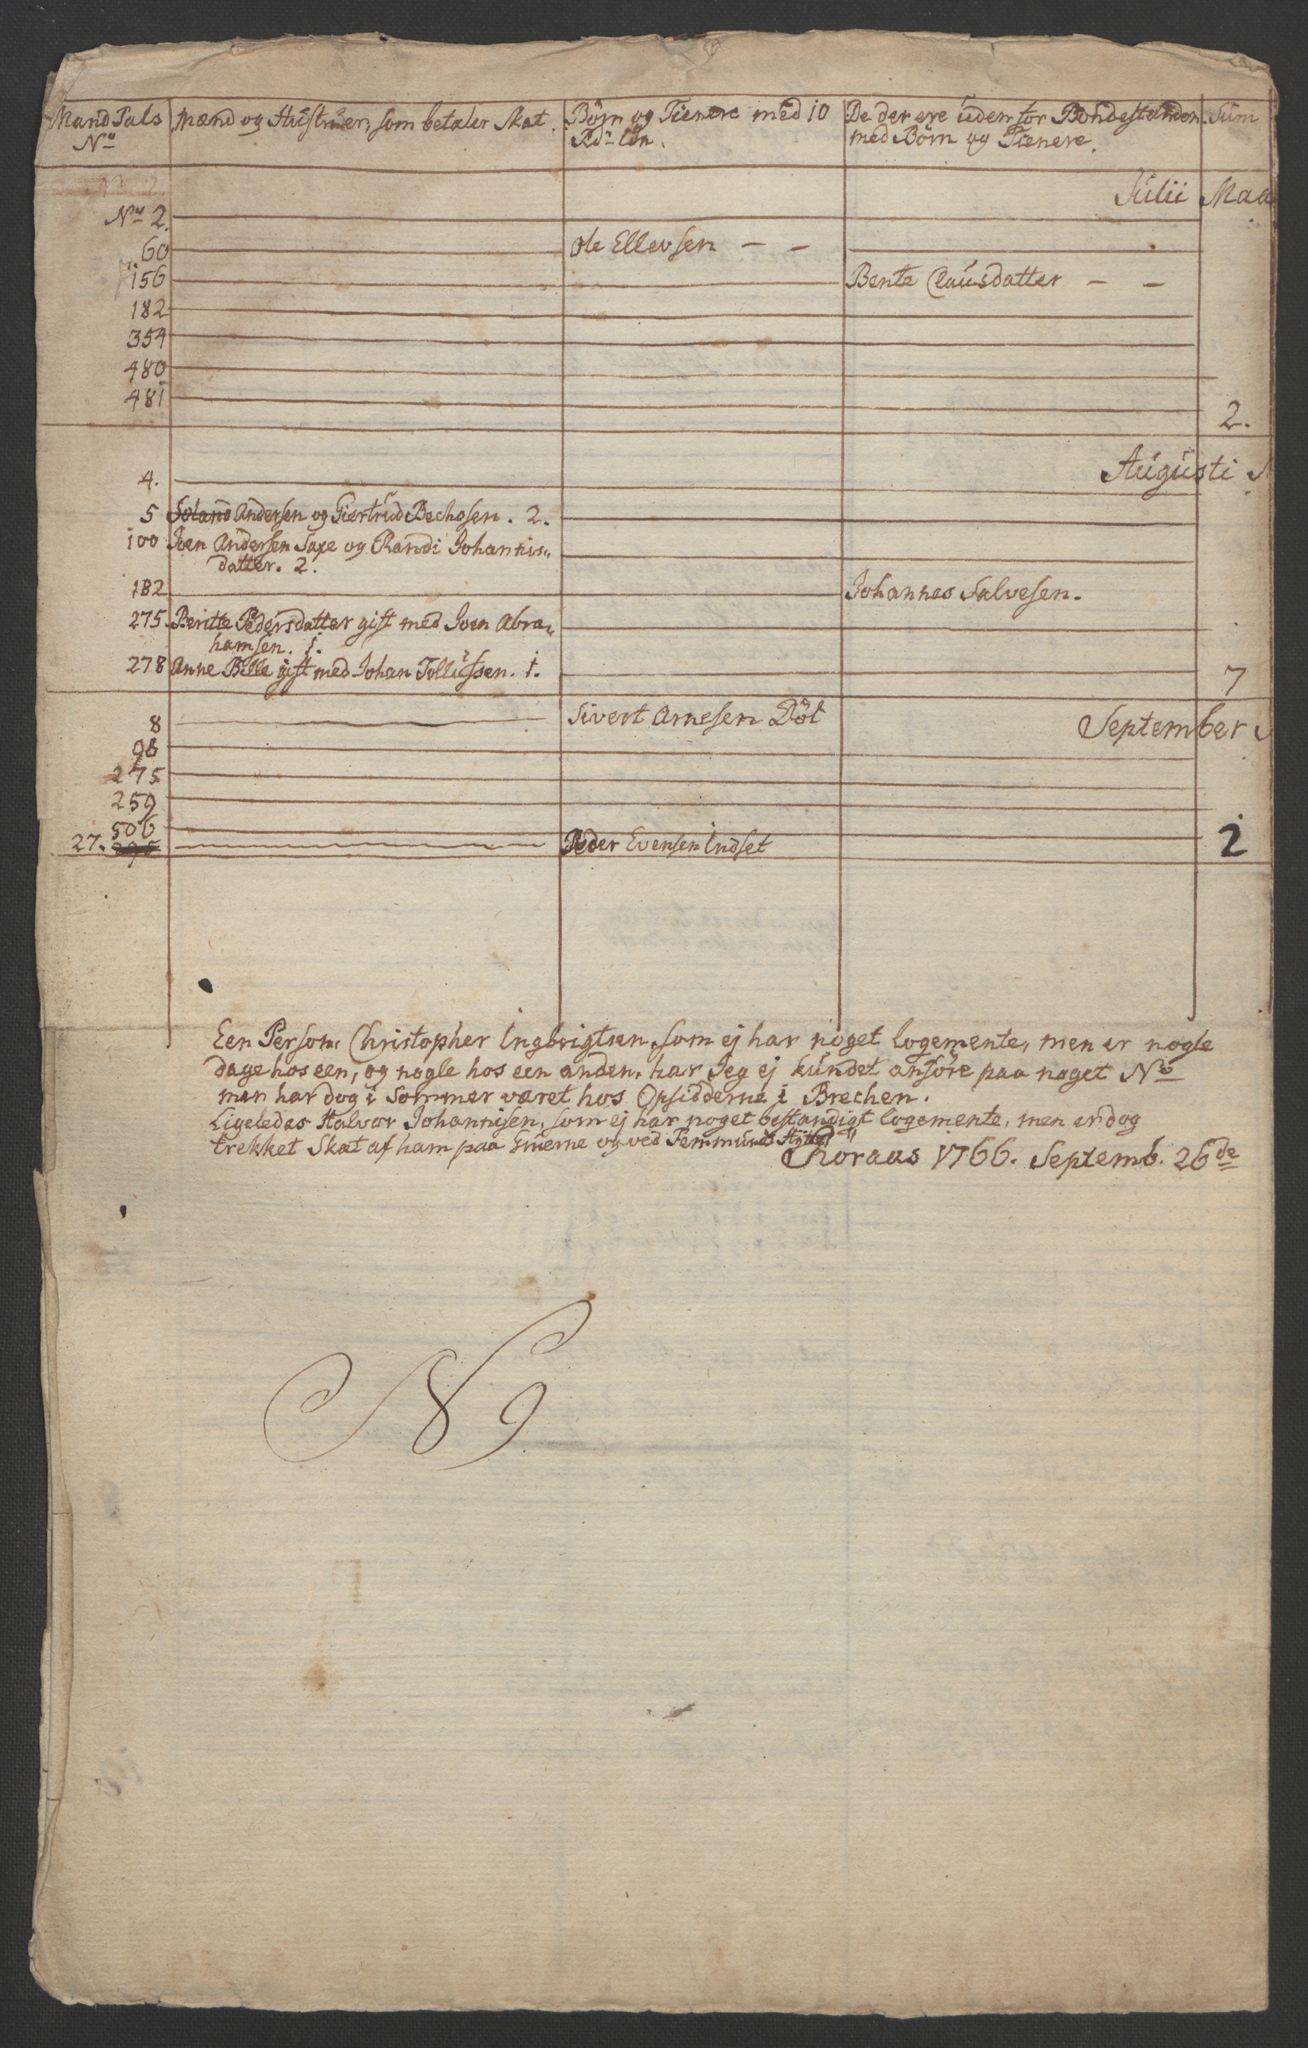 Mand Tals Mænd og Hustruer, som betaler Skat. Børn og Tienere med 10 De der ere uden for Bondestanden Sum
No Rdr løn. med Børn og Tienere.
Julii Maa
No 2.
60 Ole Ellevsen - -
156 Bente Clausdatter - -
182
354
480
481
2.
Augusti
4.
5 Andersen og Giertrud Bechosen. 2.
100 Joen Andersen Saxe og Randi Johannis-
datter. 2.
182 Johannes Salvesen.
275 Beritte Pedersdatter gift med Joen Abra-
hamsen. 1.
278 Anne Bille gift med Johan Tollufsen. 1.
7
8 Sivert Arnesen Döl September
98
275
259
506
27. Peder Evensen Indset 2
Een Person, Christopher Ingbrigtsen, som ej har noget logemente, men er nogle
dage hos een, og nogle hos een anden, har Jeg ej kundet anföre paa noget No
men har dog i Sommer været hos Opsidderne i Brechen.
Ligeledes Halvor Johannisen, som ej har noget bestandigt logemente, men er dog
trekket Skat af ham paa Gruerne og ved Femmunds Hytte
Röraas 1766. Septemb. 26de